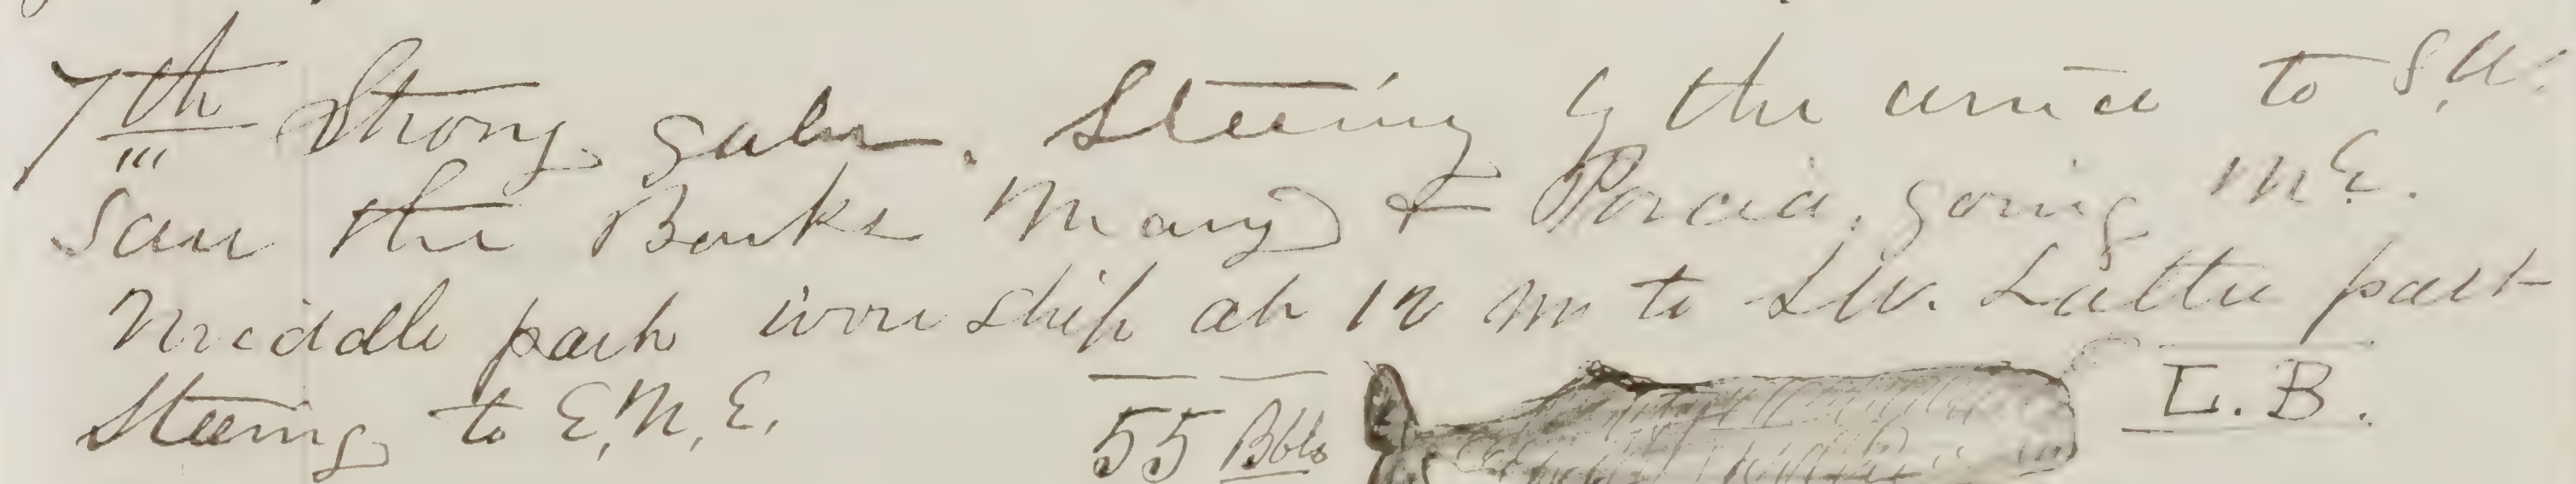 7th Strong gales. Steering by the wind to S.W.
Saw the Barks Mary & Porcia. going NE.
Middle part wore ship at 12 M to SW. Latter part
Steering to E.N.E. 55 Bbls L.B.